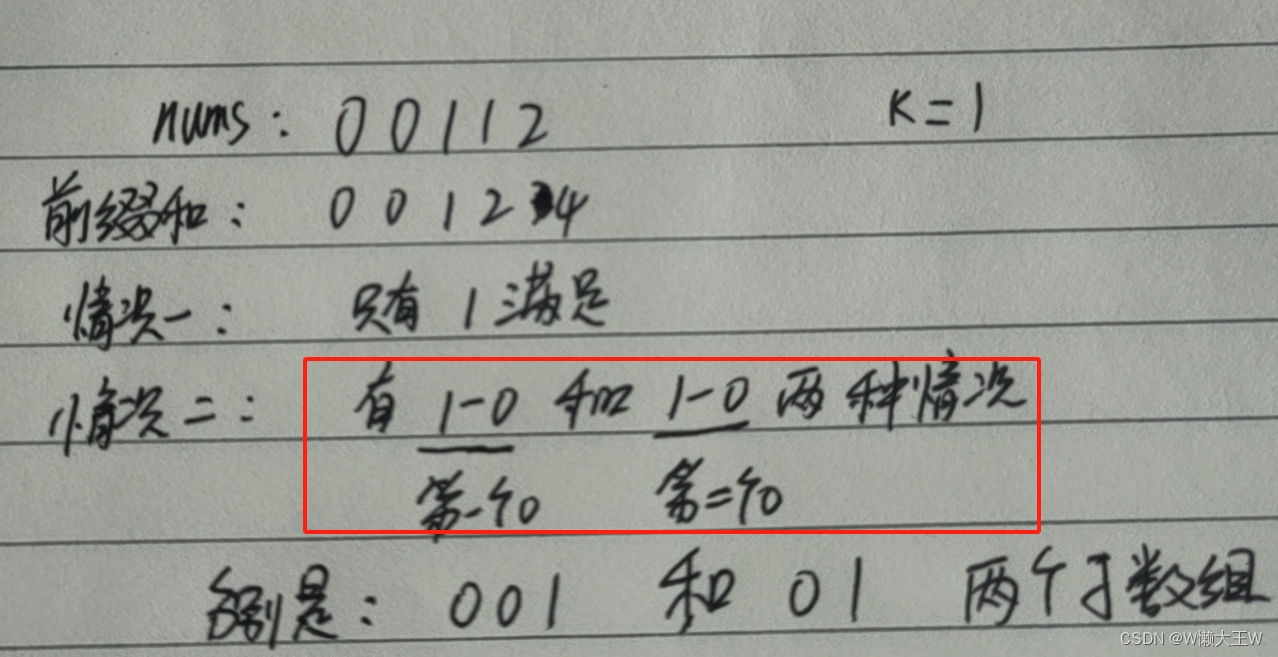 nums: 00112 K=1
前缀和: 0 0 1 2 4
情况一: 只有 1 满足
情况二: 有 1-0 和 1-0 两种情况
第一个0 第二个0
分别是: 001 和 01 两个子数组
CSDN @W懒大王W